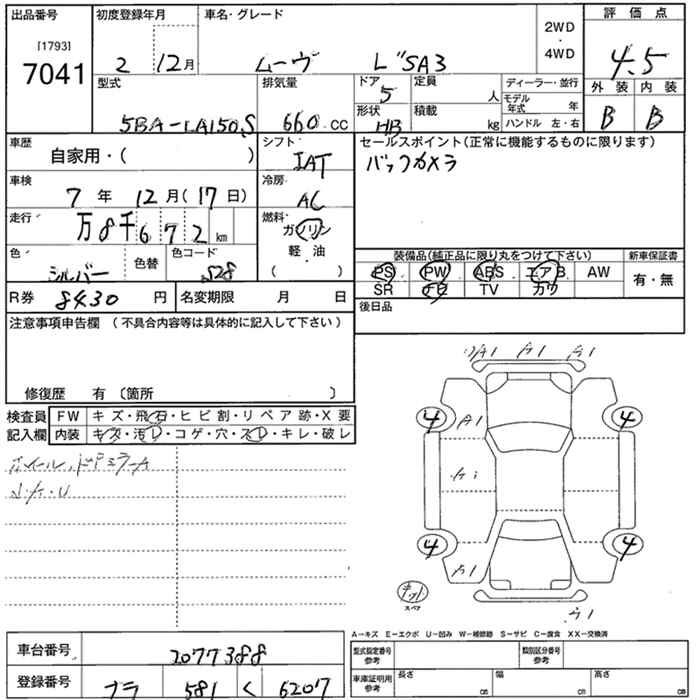 出品番号 初度登録年月 車名・グレード 2WD・4WD 評価点
[1793]
7041
2 12月 ムーヴ L"SA3 4.5
型式 排気量 ドア 定員 ディーラー・並行 外装 内装
5 人 モデル年式 年
5BA-LA150S 660 cc 形状 積載 ハンドル 左・右 B B
HB kg
車歴 シフト セールスポイント(正常に機能するものに限ります)
自家用・( ) IAT バックカメラ
車検 冷房
7年 12月(17日) AC
走行 燃料
万8千672km ガソリン
軽・油
( )
色 色替 色コード 装備品(純正品に限り丸をつけて下さい) 新車保証書
シルバー S28 PS PW ABS エアB AW 有・無
SR ナビ TV カワ
R券 8430円 名変期限 月 日 後日品
注意事項申告欄(不具合内容等は具体的に記入して下さい)
修復歴 有(箇所 )
検査員 FW キズ・飛石・ヒビ割・リペア跡・X要
記入欄 内装 キズ・汚レ・コゲ・穴・スレ・キレ・破レ
ホイール、ドアミラーA
A1 A1 A1
4 4
A1
4 4
A1
スペア
A1
A-キズ E-エクボ U-凹み W-補修跡 S-サビ C-腐食 XX-交換済
車台番号 2077388 型式指定番号参考 類別区分番号参考
登録番号 ナラ 581 く 6207 車庫証明用参考 長さ cm 幅 cm 高さ cm